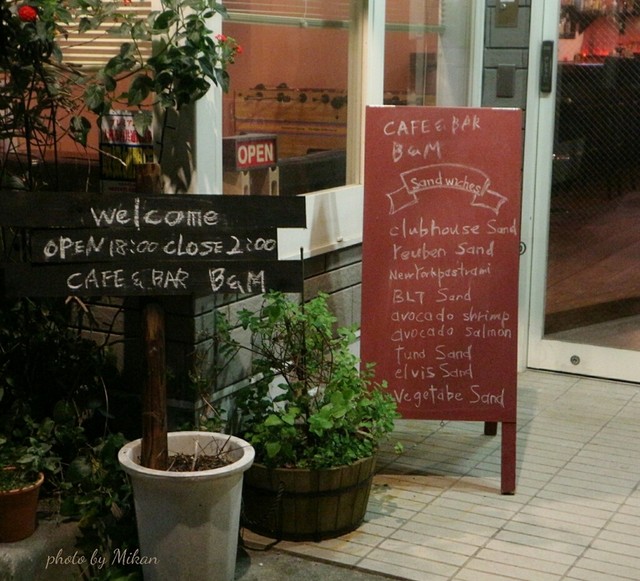 OPEN
welcome
OPEN 18:00 CLOSE 2:00
CAFE & BAR B&M
CAFE & BAR
B&M
Sandwiches
clubhouse Sand
reuben Sand
NewYorkpastrami
BLT Sand
avocado shrimp
avocado salmon
Tuna Sand
elvis Sand
Vegetabe Sand
photo by Mikan